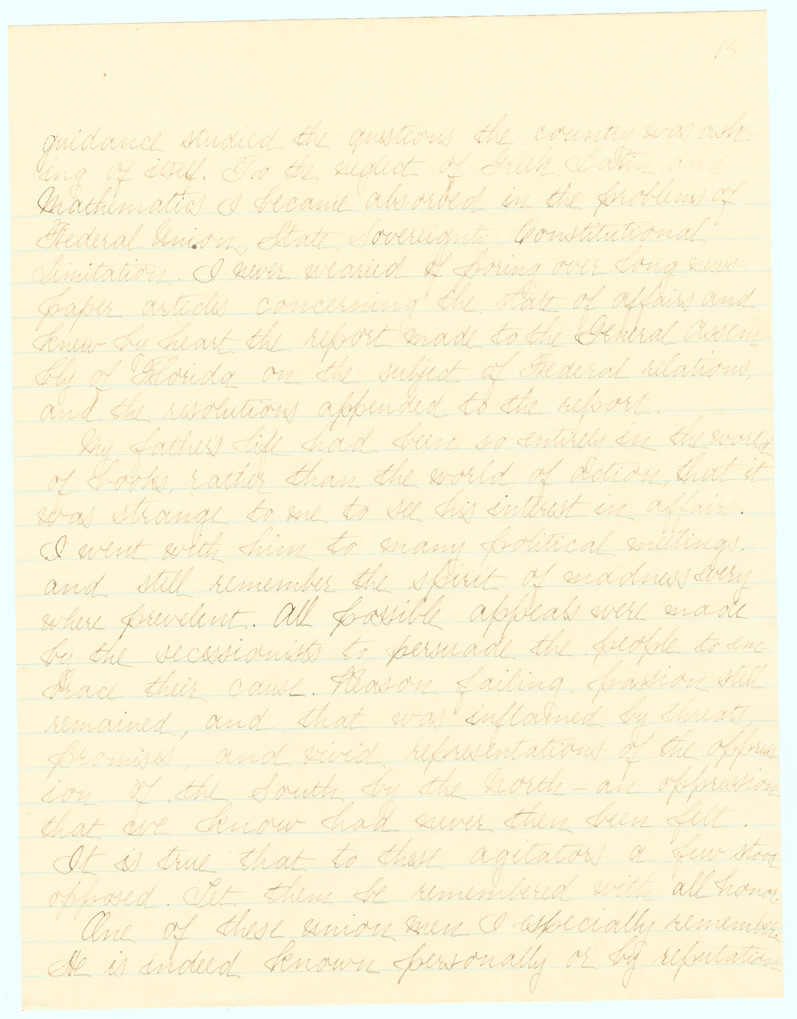 15
guidance studied the questions the country was ask-
ing of itself. To the neglect of Greek, Latin, and
Mathematics I became absorbed in the problems of
Federal Union, State Sovereignty, Constitutional
Limitation. I never wearied of poring over long news-
paper articles concerning the state of affairs and
knew by heart the report made to the General Assem-
bly of Florida on the subject of Federal relations,
and the resolutions appended to the report.
My fathers life had been so entirely in the world
of books, rather than the world of action, that it
was strange to me to see his interest in affairs.
I went with him to many political meetings.
and still remember the spirit of madness every
where prevelent. All possible appeals were made
by the secessionists to persuade the people to em
brace their cause. Reason failing, passion still
remained, and that was inflamed by threats,
promises, and vivid representations of the oppress
ion of the South by the North - an oppression
that we know had never then been felt.
It is true that to these agitators a few stood
opposed. Let them be remembered with all honor
One of these union men I especially remember.
He is indeed known personally or by reputation